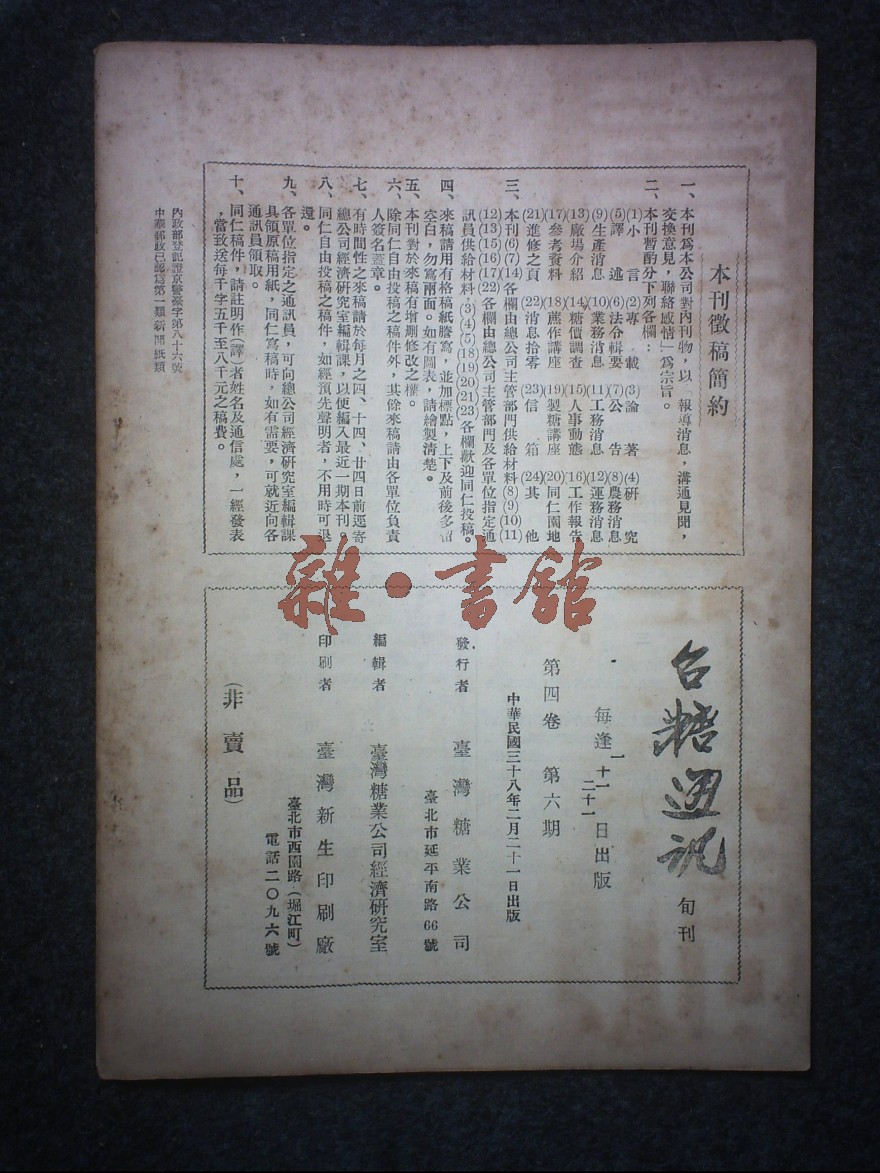 本刊徵稿簡約
一、本刊爲本公司對內刊物，以「報導消息，溝通見聞，
交換意見，聯絡感情」爲宗旨。
二、本刊暫酌分下列各欄：
(1)小言 (2)專載 (3)論著 (4)研究
(5)譯述 (6)法令輯要 (7)公告 (8)農務消息
(9)生產消息 (10)業務消息 (11)工務消息 (12)運務消息
(13)廠場介紹 (14)糖價調查 (15)人事動態 (16)工作報告
(17)參考資料 (18)蔗作講座 (19)製糖講座 (20)同仁園地
(21)進修之頁 (22)消息拾零 (23)信箱 (24)其他
三、本刊(6)(7)(14)各欄由總公司主管部門供給材料(8)(9)(10)(11)
(12)(13)(15)(16)(17)(22)各欄由總公司主管部門及各單位指定通
訊員供給材料，(3)(4)(5)(18)(19)(20)(21)(23)各欄歡迎同仁投稿。
四、來稿請用有格稿紙謄寫，並加標點，上下及前後多留
空白，勿寫兩面。如有圖表，請繪製清楚。
五、本刊對於來稿有增刪修改之權。
六、除同仁自由投稿之稿件外，其餘來稿請由各單位負責
人簽名蓋章。
七、有時間性之來稿請於每月之四、十四、廿四日前逕寄
總公司經濟研究室編輯課，以便編入最近一期本刊。
八、同仁自由投稿之稿件，如經預先聲明者，不用時可退
還。
九、各單位指定之通訊員，可向總公司經濟研究室編輯課
具領原稿用紙，同仁寫稿時，如有需要，可就近向各
通訊員領取。
十、同仁稿件，請註明作(譯)者姓名及通信處，一經發表
，當致送每千字五千至八千元之稿費。
內政部登記證京警臺字第八十六號
中華郵政已認爲第一類新聞紙類
雜·書館
台糖通訊 旬刊
每逢一十一二十一日出版
第四卷 第六期
中華民國三十八年二月二十一日出版
發行者 臺灣糖業公司
臺北市延平南路66號
編輯者 臺灣糖業公司經濟研究室
印刷者 臺灣新生印刷廠
臺北市西園路(堀江町)
電話二〇九六號
(非賣品)